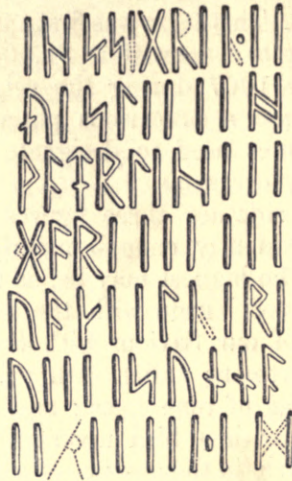 ᛁᚺᛋᛋᛁᚷᚱᛁᚱ•ᛁᛁ
ᚢᛁᛋᛚᛁᛁᛁᛁᚻ
ᚹᚨᛏᚱᛚᛁᚺᛁᛁᛁ
ᚷᚨᚱᛁᛁᛁᛁᛁᛁᛁ
ᚢᚨᚴᛁᛁᛚᛁᛁᚱᛁ
ᚢᛁᛁᛁᛁᛋᚢᚾᚾᚨ
ᛁᛁᚱᛁᛁᛁᛁᛁ•ᛁᛞ